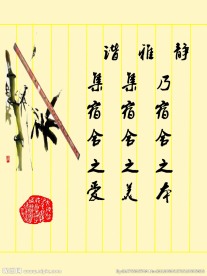 静雅谐
乃宿舍之本
集宿舍之美
集宿舍之爱